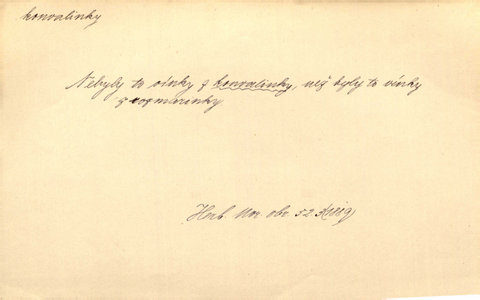 konvalinky
Nebyly to vínky z konvalinky, než byly to vínky
z rozmarinky
Herb. Mor. obr. 52 (1889)